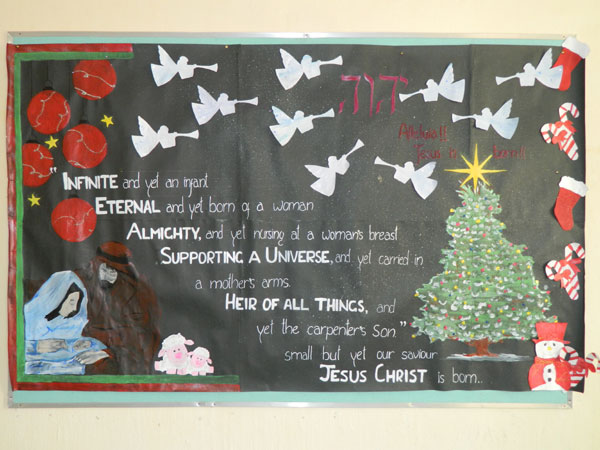 יהוה
Alleluia!!
Jesus is born!!
"INFINITE and yet an infant
ETERNAL and yet born of a woman
ALMIGHTY, and yet nursing at a woman's breast
SUPPORTING A UNIVERSE, and yet carried in
a mother's arms.
HEIR OF ALL THINGS, and
yet the carpenter's son."
small but yet our saviour
JESUS CHRIST is born..